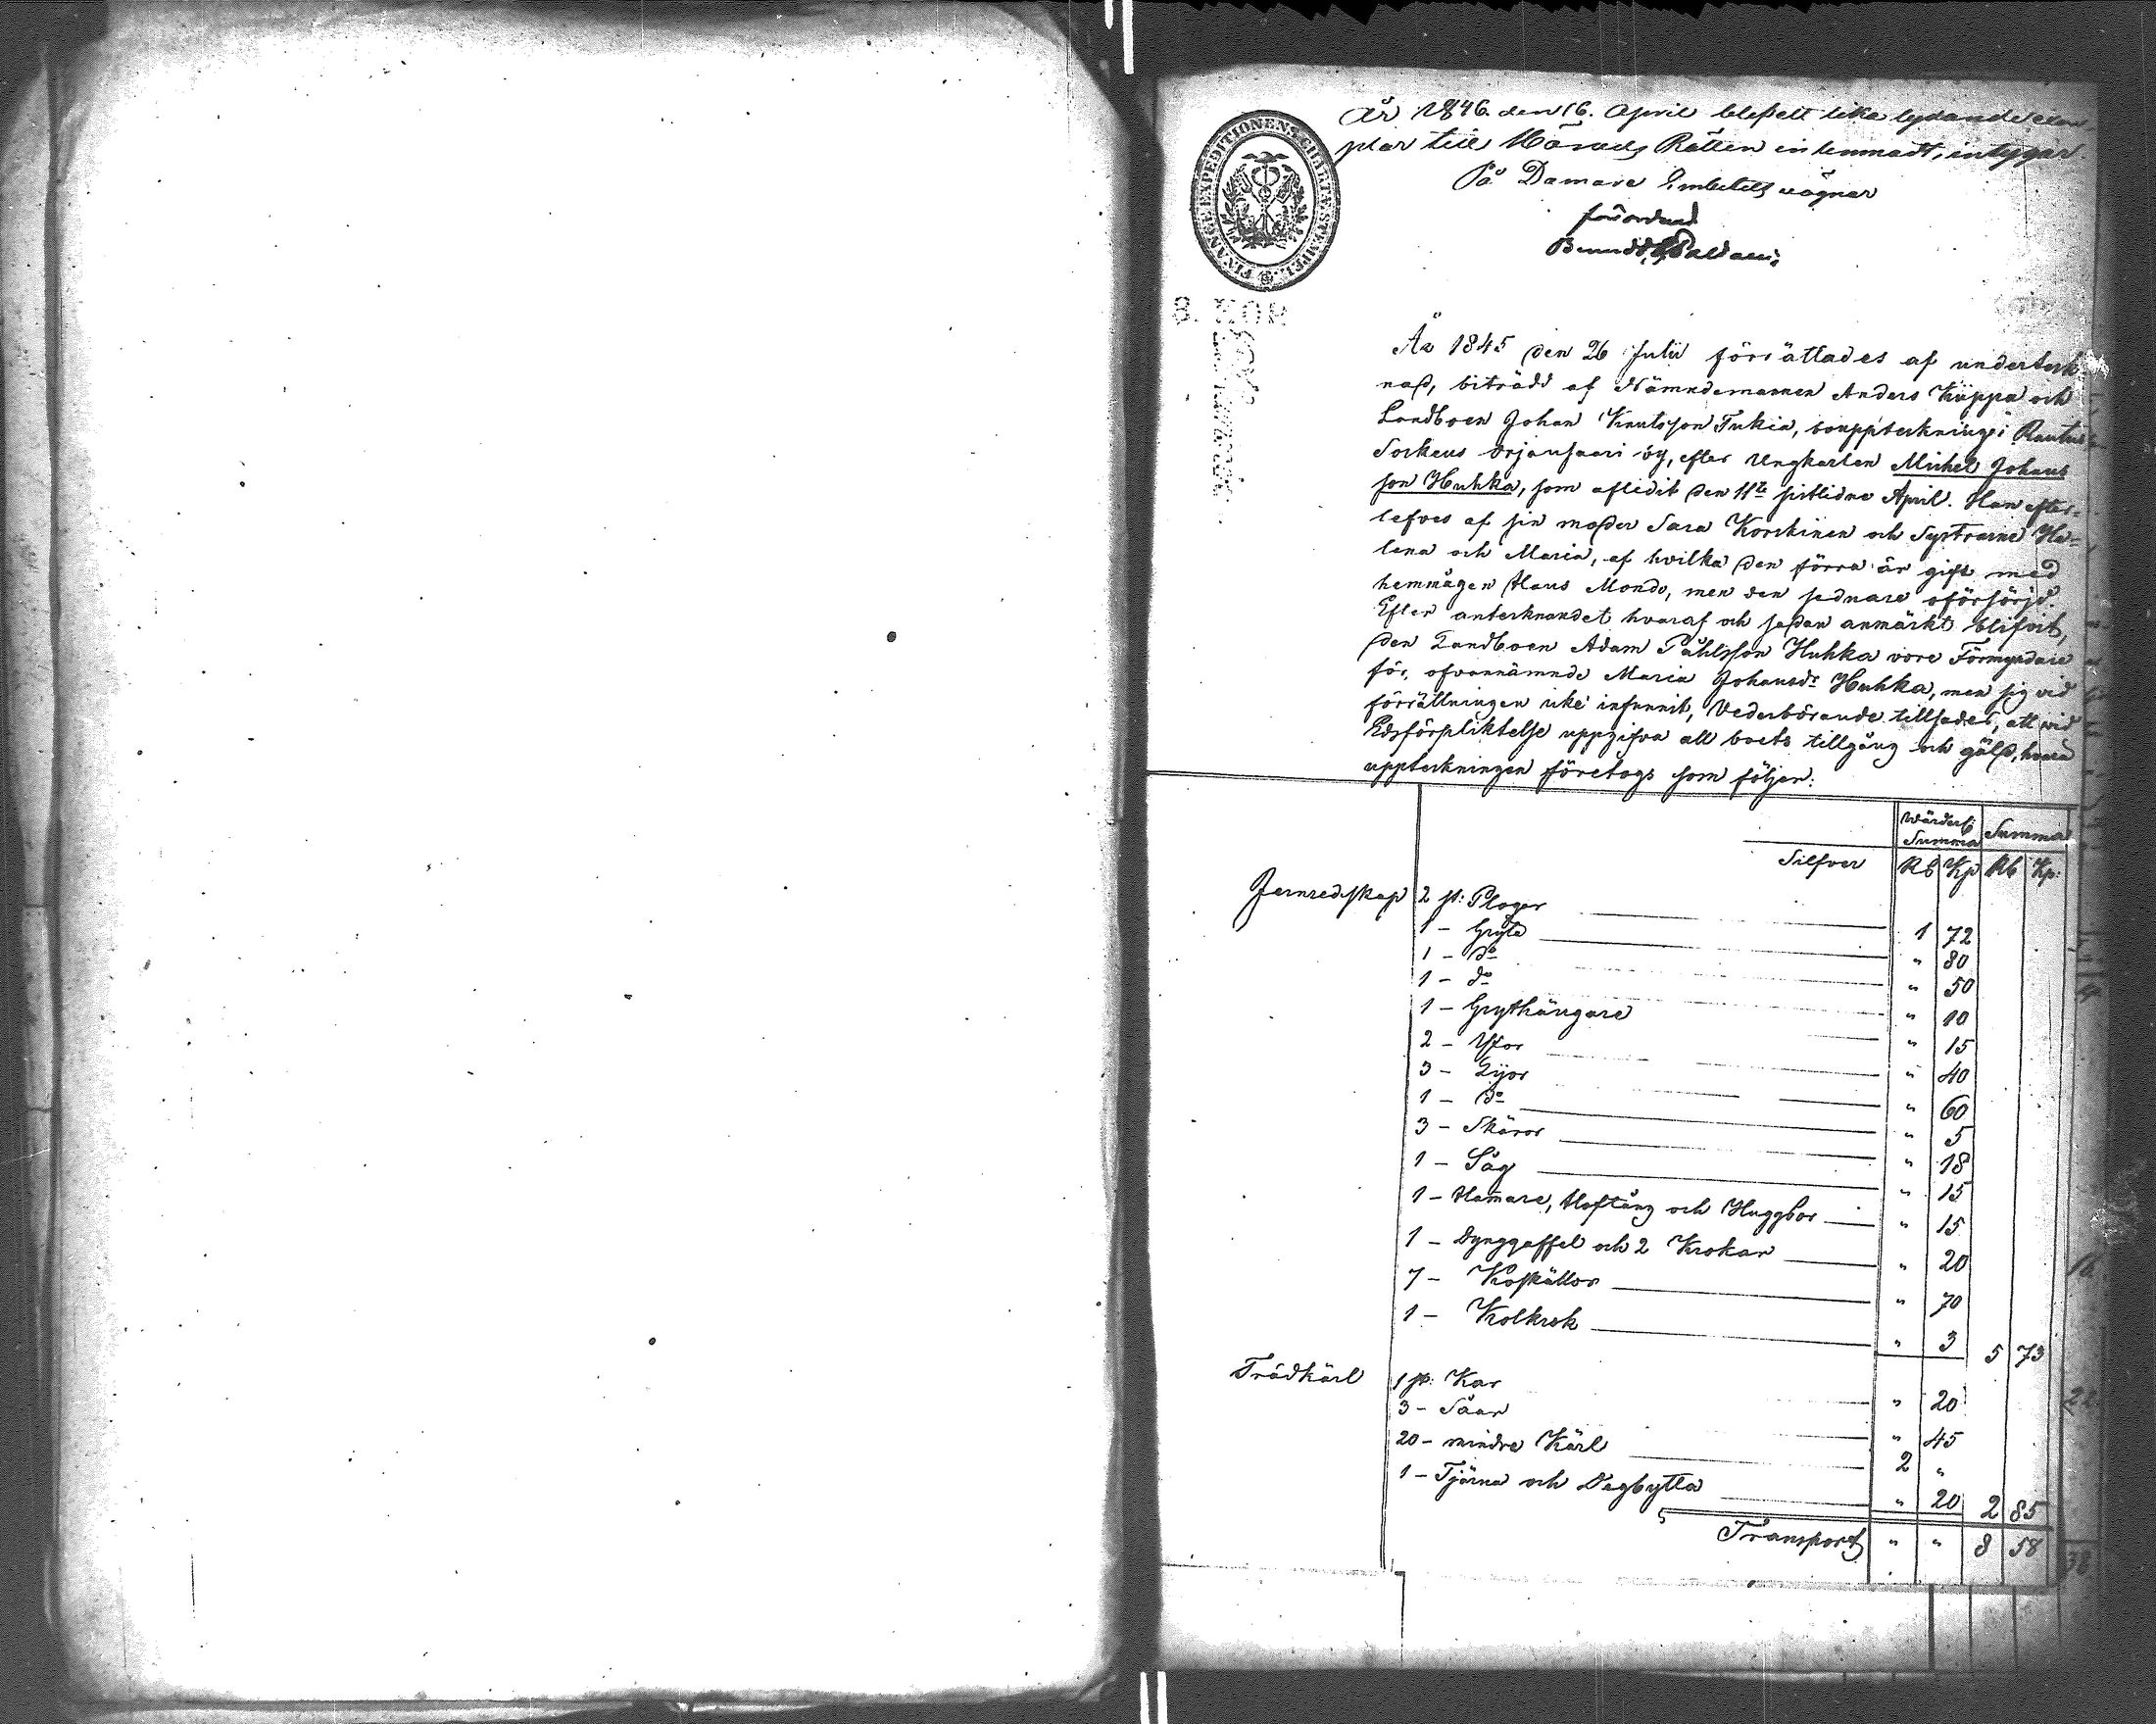 År 1846. den 16. April blef ett lika lydande exem-
plar till Härads Rätten in lemnadt, intygar.
På Domare Embetets vägnar
förordnad
FINANCE EXPEDITIONENS CHARTÆ STEMPEL
8. KOP
År 1845 den 26 Julii förrättades af underteck-
nad, biträdd af Nämndemannen Anders Kiippa och
Landboen Johan Knutsson Tukia, bouppteckning i Rautus
Sockens Orjansaari by, efter Ungkarlen Michel Johans
son Huhka, som aflidit den 11te sistlidne April. Han efter-
lefves af sin moder Sara Korckinen och Systrarne He-
lena och Maria, af hvilka den förra är gift med
hemmågen Hans Mondo, men den sednare oförsörjd.
Efter antecknandet hvaraf och sedan anmärkt blifvit,
den Landboen Adam Påhlsson Huhka vore Förmyndare
för, ofvannämnde Maria Johansdr Huhka, men sig vid
förrättningen icke infunnit, Vederbörande tillsades, att vid
Edsförpliktelse uppgifva all boets tillgång och gäld, hvara
uppteckningen företogs som följer:
Wärderb Summa Summa
Silfver Rb Kp Rb Kp:
Jernredskap 2 st: Plogar 1 72
1 - Gryta " 80
1 - do " 50
1 - do " 10
1 - Grythängare " 15
2 - Yxor " 40
3 - Lijor " 60
1 - do " 5
3 - Skäror " 18
1 - Såg " 15
1 - Hamare, Hoftång och Huggbor " 15
1 - Dynggaffel och 2 Krokar " 20
7 - Koskällor " 70
1 - Kolkrok " 3 5 73
Trädkärl 1 st: Kar " 20
3 - Såar " 45
20 - mindre Kärl 2 "
1 - Tjärna och Degbytta " 20 2 85
Transport " " 8 58